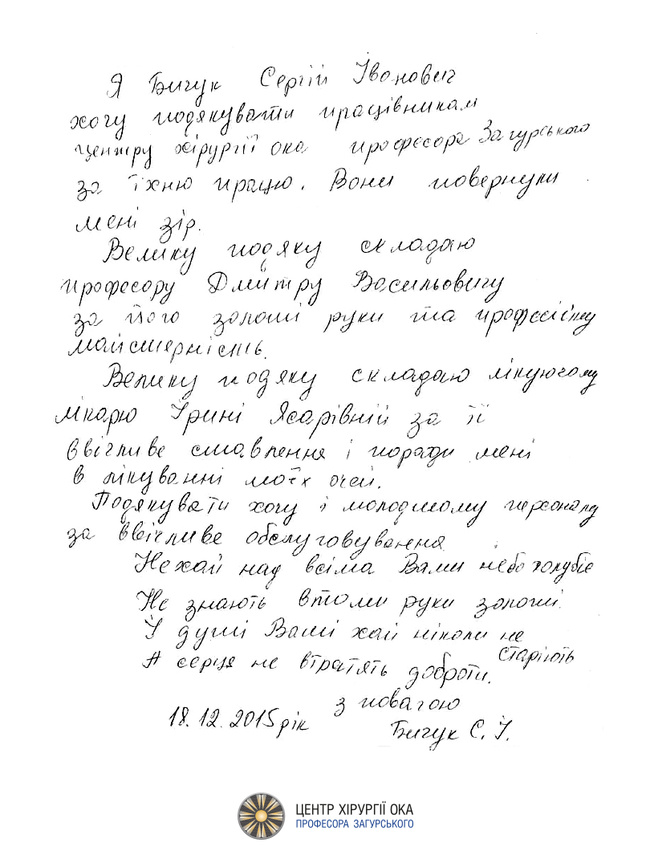 Я Бичук Сергій Іванович
хочу подякувати працівникам
центру хірургії ока професора Загурського
за їхню працю. Вони повернули
мені зір.
Велику подяку складаю
професору Дмитру Васильовичу
за його золоті руки та професійну
майстерність.
Велику подяку складаю лікуючому
лікарю Ірині Ясарівній за її
ввічливе ставлення і поради мені
в лікуванні моїх очей.
Подякувати хочу і молодшому персоналу
за ввічливе обслуговування
Нехай над всіма Вами небо голубіє
Не знають втоми руки золоті.
І душі Ваші хай ніколи не
старіють
А серця не втратять доброти.
з повагою
18.12.2015 рік
Бичук С. І.
ЦЕНТР ХІРУРГІЇ ОКА
ПРОФЕСОРА ЗАГУРСЬКОГО